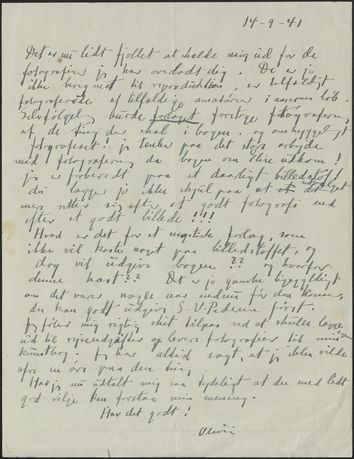 14-9-41
Det er nu lidt fjollet at skælde mig ud for de
fotografier jeg har overladt dig. De er jo
ikke beregnet til reproduktion, er tilfældigt
fotograferede af tilfældige amatører i aarenes løb.
Selvfølgelig burde forlaget foretage fotografering
af de ting der skal i bogen. og omhyggeligt
fotograferet! jeg tænker paa det store arbejde
med fotografering da bogen om Elise udkom!
jeg er forberedt paa et daarligt billedstof!
du lægger jo ikke skjul paa at det
mere retter sig efter et godt fotografi end
efter et godt billede!!!
Hvad er det for et mystisk forlag, som
ikke vil koste noget paa billedstoffet, og
dog vil udgive bogen?? og hvorfor
denne hast?? Det er jo ganske ligegyldigt
om det varer nogle aar endnu før den kommer,
du kan godt udgive S.V. Pedersen først.
Jeg føler mig rigtig skidt tilpas ved at skulle
ud til og levere fotografier til min
kunstbog, Jeg har altid sagt, at jeg ikke vilde
ofre en øre paa den ting
Har jeg nu udtalt mig saa tydeligt at du med lidt
god vilje kan forstaa min mening.
Hav det godt!